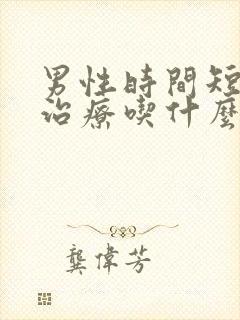 男性時間短
治療喫什麼
龔偉芳